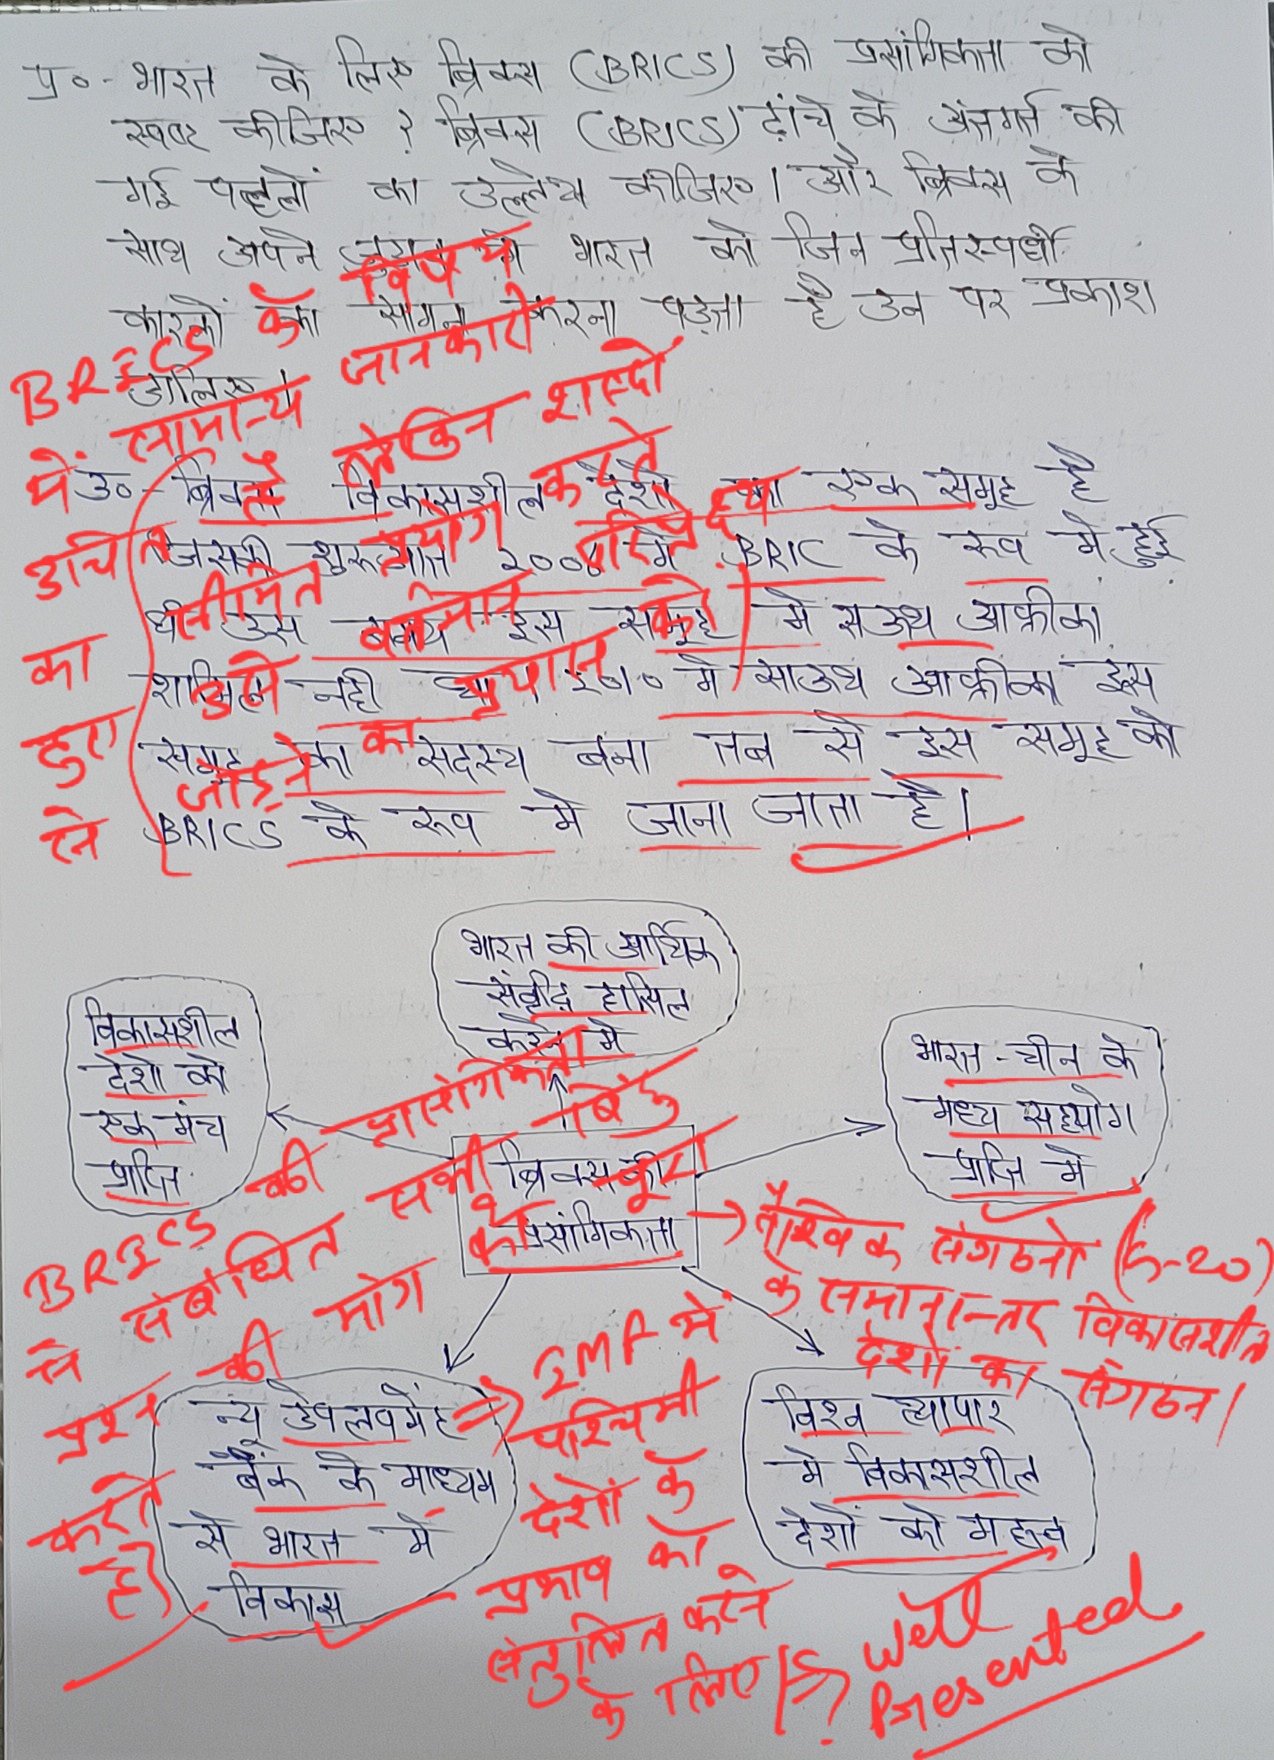 प्र०- भारत के लिए ब्रिक्स (BRICS) की प्रसांगिकता को
स्पष्ट कीजिए ? ब्रिक्स (BRICS) ढ़ांचे के अंतर्गत की
गई पहलों का उल्लेख कीजिए। और ब्रिक्स के
साथ अपने जुड़ाव में भारत को जिन प्रतिस्पर्धी
कारकों का सामना करना पड़ता है उन पर प्रकाश
डालिए।
BRICS के विषय
में सामान्य जानकारी
है लेकिन शब्दों
का उचित प्रयोग करते
हुए सीमित
से जोड़ने का प्रयास करें।
उ०- ब्रिक्स विकासशील देशों का एक समूह है
जिसकी शुरुआत में BRIC के रूप में हुई
थी उस समय इस समूह में साउथ आफ्रीका
शामिल नही था २०१० मे साउथ आफ्रीका इस
समूह का सदस्य बना तब से इस समूह को
BRICS के रूप में जाना जाता है।
भारत की आर्थिक
संवृद्धि हासिल
करने में
विकासशील
देशों को
एक मंच
प्राप्ति
भारत-चीन के
मध्य सहयोग
प्राप्ति में
ब्रिक्स की
प्रसांगिकता
BRICS की प्रासंगिकता
से संबंधित सभी बिंदु
प्रश्न की मांग को पूरा
करते हैं।
→ वैश्विक संगठनों (G-20)
के समानान्तर विकासशील
देशों का संगठन।
न्यू डेवलपमेंट
बैंक के माध्यम
से भारत में
विकास
⇒ IMF में
पश्चिमी
देशों के
प्रभाव को
संतुलित करने
के लिए।
विश्व व्यापार
मे विकासशील
देशों को महत्व
Well
Presented